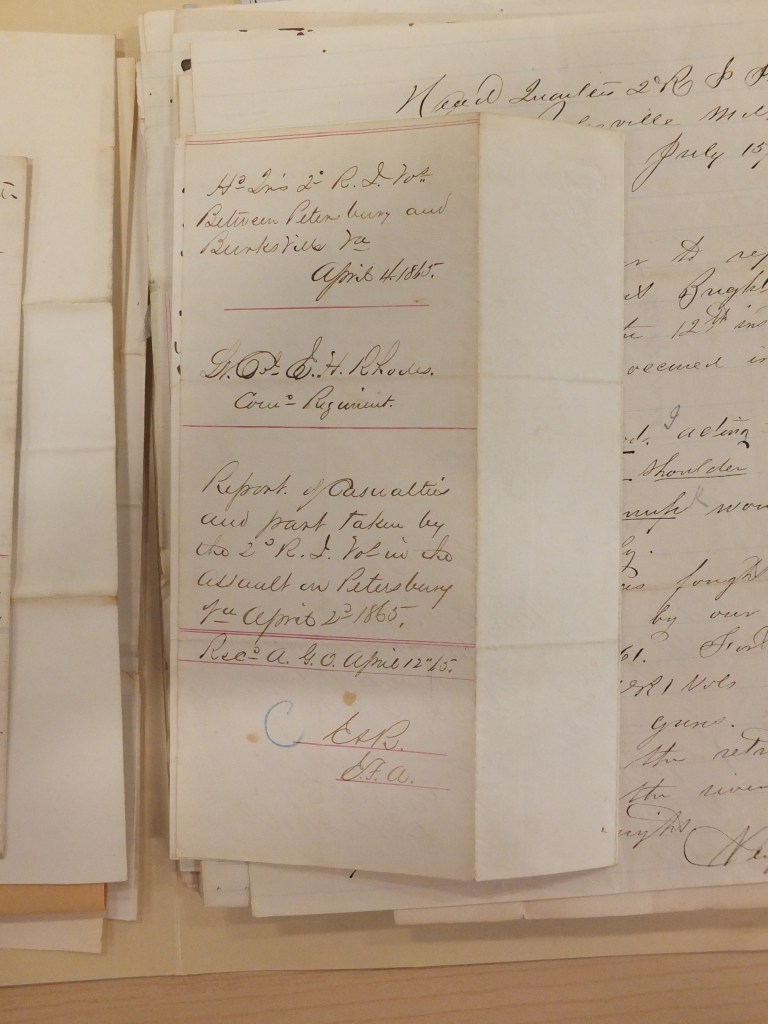 Head Quarters 2d R I
ville Md.
July 15
Hd Qrs 2d R. I. Vols
Between Petersburg and
Burksville Va
April 4. 1865.
Lt. Col E. H. Rhodes.
Comd Regiment.
Report of Casualties
and part taken by
the 2d R. I. Vols in the
assault on Petersburg
Va April 2d 1865.
Recd A. G. O. April 12" 65.
C
E.F.A.
to rep
Bright
12th ins
occured in
I acting
shoulder
wou
fough
by our
61. Fort
R I Vols
guns.
the retr
the river